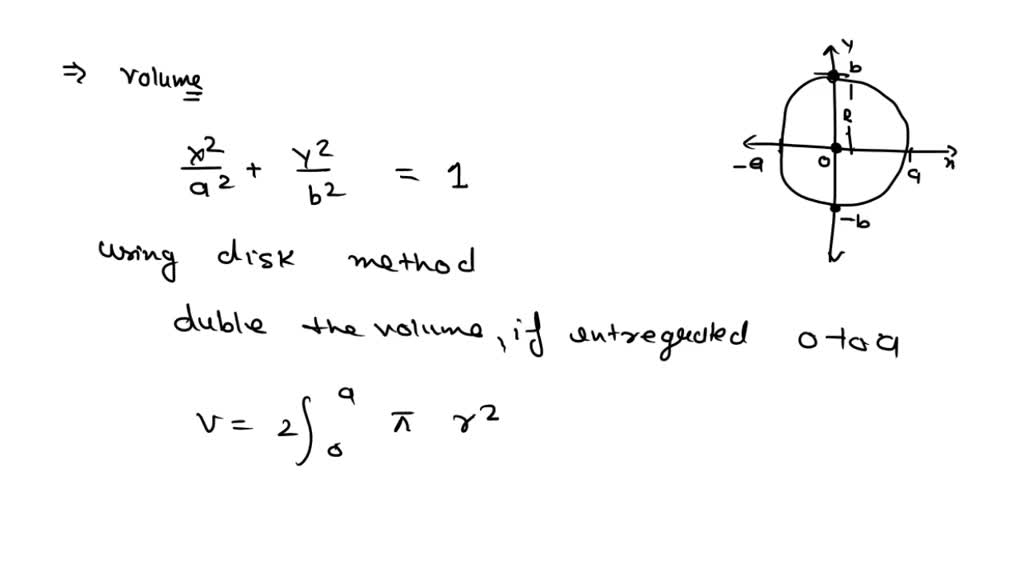 ⇒ volume
x²/a² + y²/b² = 1
using disk method
duble the volume, if entregeded 0 to a
V = 2∫₀ᵃ π r²
y
b
R
-a
0
a
x
-b